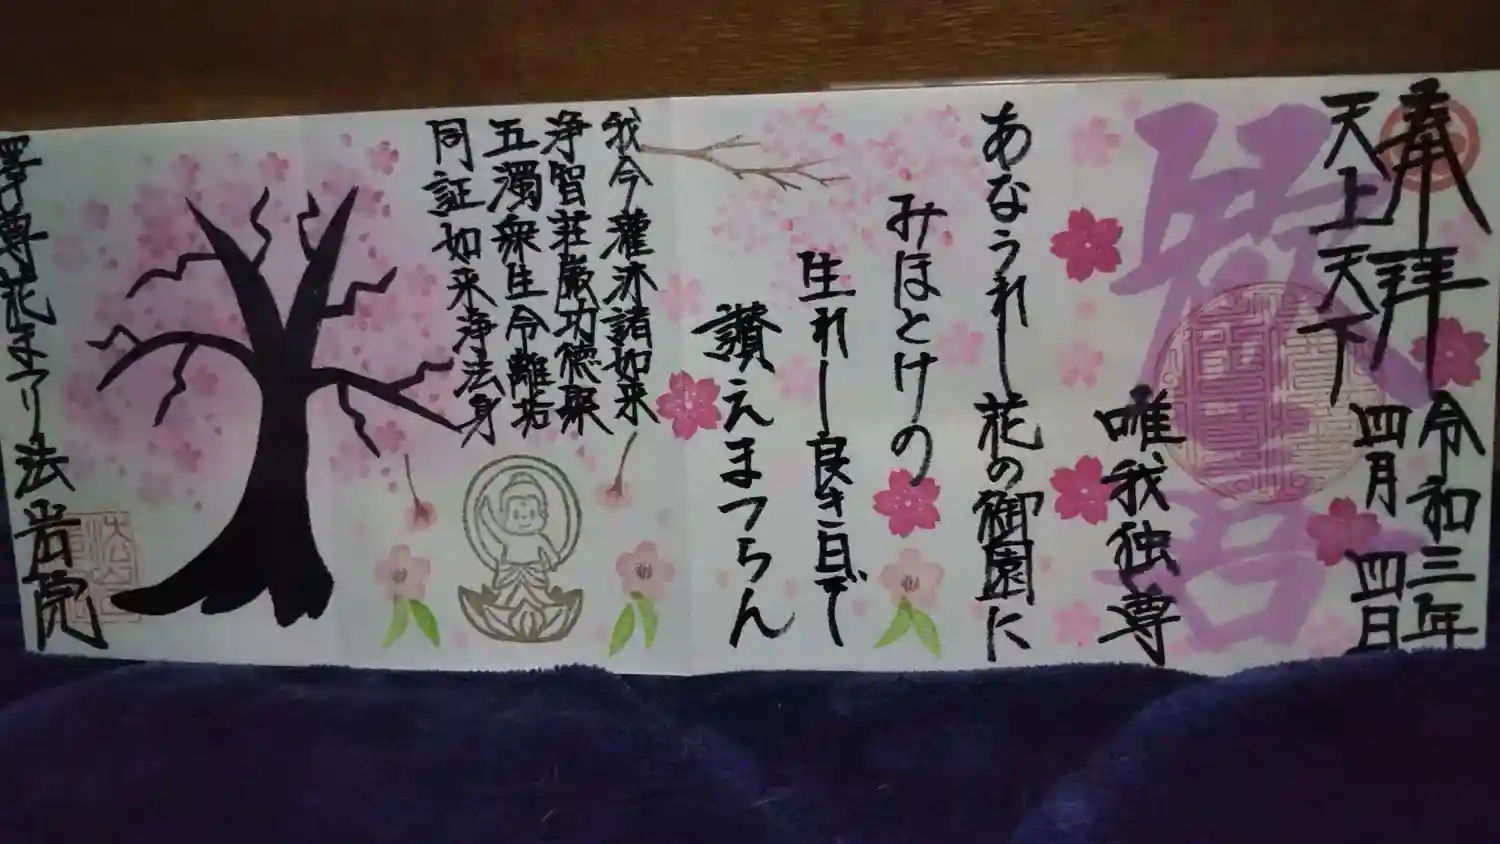 奉拝
令和三年
四月 四日
天上天下
唯我独尊
あなうれし花の御園に
みほとけの
生れし良き日で
讃えまつらん
我今灌沐諸如来
浄智荘厳功徳聚
五濁衆生令離垢
同証如来浄法身
釋尊花まつり法岩院